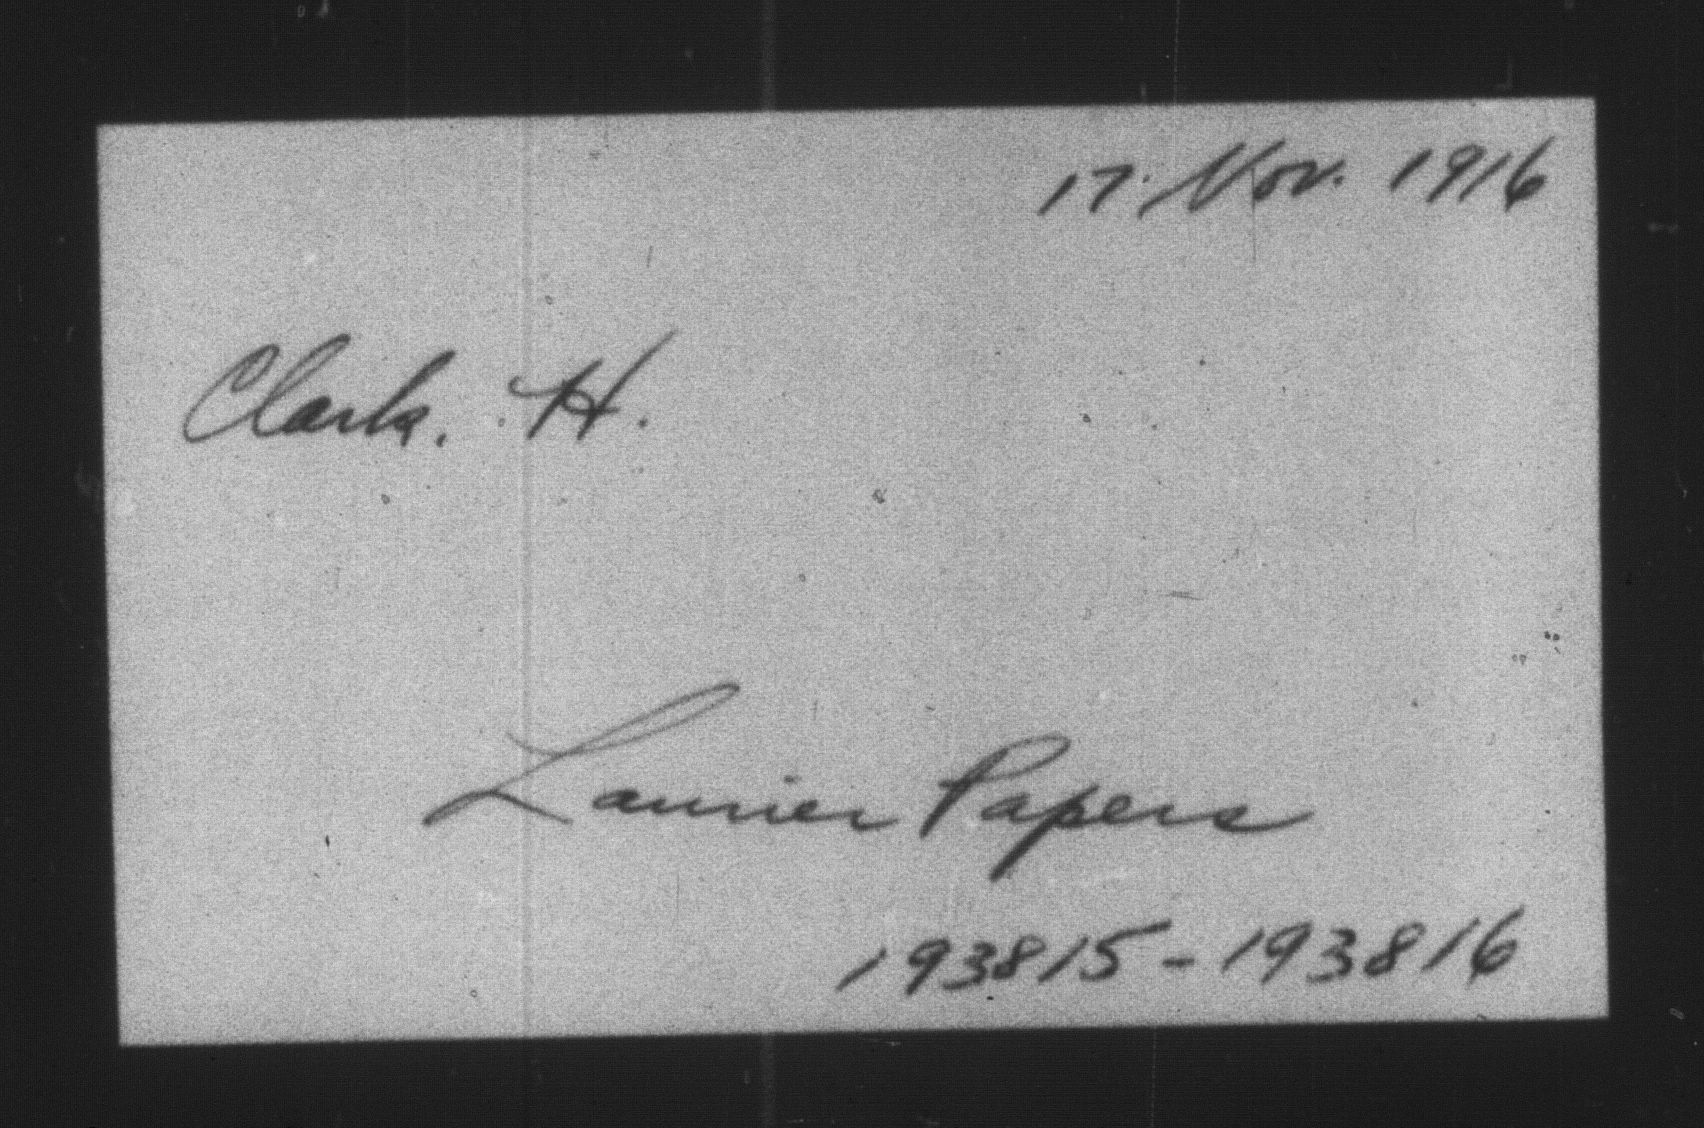 17. Nov. 1916
Clark. H.
Laurier Papers
193815-193816